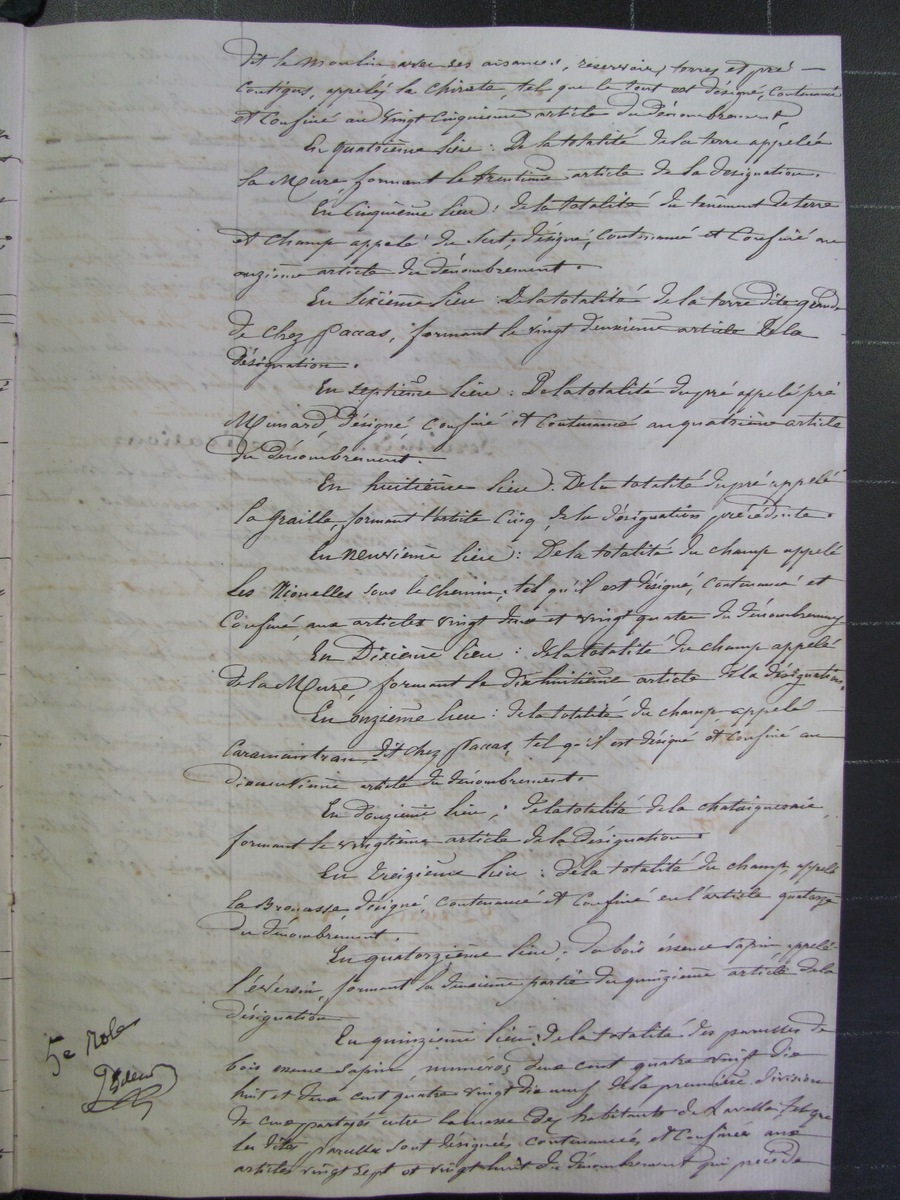 dit le moulin avec ses aisances, réservoir, terres et pré
Contigus, appelés la chirate, tel que le tout est désigné, contenancé
et Confiné au vingt cinquième article du dénombrement
En quatrième lieu : De la totalité de la terre appelée
La Mure, formant le trentième article de la désignation.
En Cinquième lieu : de la totalité du tènement de terre
et champ appelé du Sert, désigné, contenancé et Confiné au
onzième article du dénombrement.
En Sixième lieu De la totalité de la terre dite grande
de chez Paccas, formant le vingt deuxième article de la
désignation.
En septième lieu : De la totalité du pré appelé pré
Munard, désigné confiné et contenancé au quatrième article
du dénombrement.
En huitième lieu : De la totalité du pré appelé
La graille, formant l'article Cinq, de la désignation précédente.
En neuvième lieu : De la totalité du champ appelé
Les Nionelles sous le chemin, tel qu'il est désigné, contenancé et
Confiné, aux articles vingt trois et vingt quatre du dénombrement
En Dixième lieu : de la totalité du champ appelé
de la Mure, formant le dix huitième article de la désignation.
En onzième lieu : de la totalité du champ appelé
dit chez Paccas, tel qu'il est désigné et confiné au
dixneuvième article du dénombrement.
En douzième lieu : de la totalité de la chataigneraie
formant le vingtième article de la désignation.
En treizième lieu : de la totalité du champ, appelé
la Brouasse désigné contenancé et Confiné en l'article quatorze
du dénombrement.
En quatorzième lieu : du bois éssence sapin, appelé
l'eversin, formant la deuxième partie du quinzième article de la
désignation
En quinzième lieu : de la totalité des parcelles de
bois essence sapin, numéros deux cent quatre vingt dix
huit et deux cent quatre vingt dix neuf de la première division
de ceux partagés entre la masse des habitants de Lavalla, tel que
les dites parcelles sont désignées contenancées et Confinées aux
articles vingt sept et vingt huit du dénombrement qui précède
5e Role